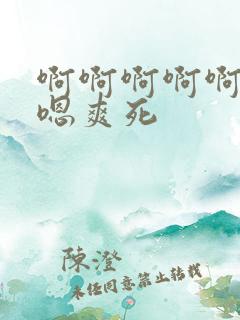 啊啊啊啊啊
嗯爽死
陳澄
未经同意禁止转载